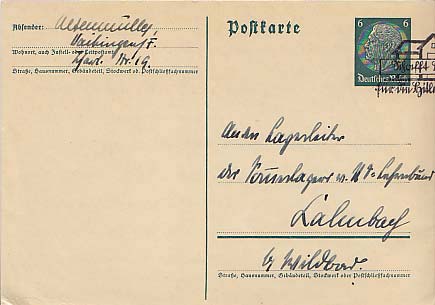 Absender: Altenmüller,
Vaihingen/F.
Wohnort, auch Zustell- oder Leitpostamt
Gart. Str. 19.
Straße, Hausnummer, Gebäudeteil, Stockwerk od. Postschließfachnummer
Postkarte
6 6
Deutsches Reich
Schafft
für die Hitler
An den Lagerleiter
des Sommerlagers v. NS-Lehrerbund
Calmbach
b/ Wildbad.
Straße, Hausnummer, Gebäudeteil, Stockwerk oder Postschließfachnummer